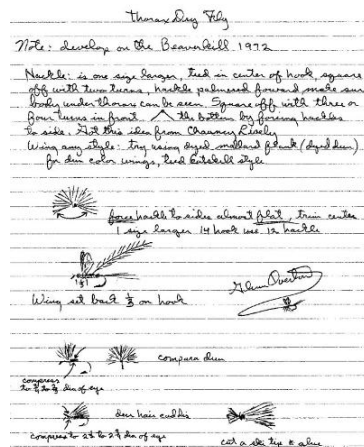 Thorax Dry Fly
Note: develop on the Beaverkill 1972
Hackle: is one size larger, tied in center of hook, square
off with two turns, hackle palmered forward make sure
body under thorax can be seen. Square off with three or
four turns in front. the bottom by forcing hackles
to side. Got this idea from Chauncy Lively
Wing any style: try using dyed mallard flank (dyed dun)
for dun color wings, tied catskill style
force hackle to sides almost flat, trim center
1 size larger 14 hook use 12 hackle
Wing set back 1/3 on hook
Glenn Overton
compara dun
compress
to dia of eye
deer hair caddis
compress to 2 to 2 dia of eye
cut a tip & glue